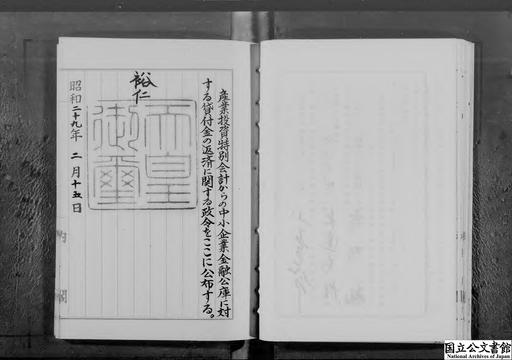 産業投資特別会計からの中小企業金融公庫に対
する貸付金の返済に関する政令をここに公布する。
裕仁
天皇
御璽
昭和二十九年二月十五日
内閣
国立公文書館
National Archives of Japan